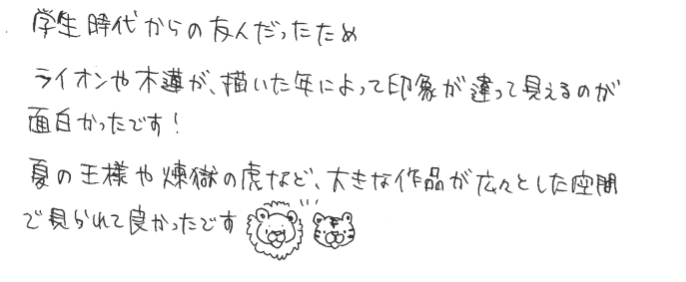 学生時代からの友人だったため
ライオンや木蓮が、描いた年によって印象が違って見えるのが
面白かったです!
夏の王様や煉獄の虎など、大きな作品が広々とした空間
で見られて良かったです